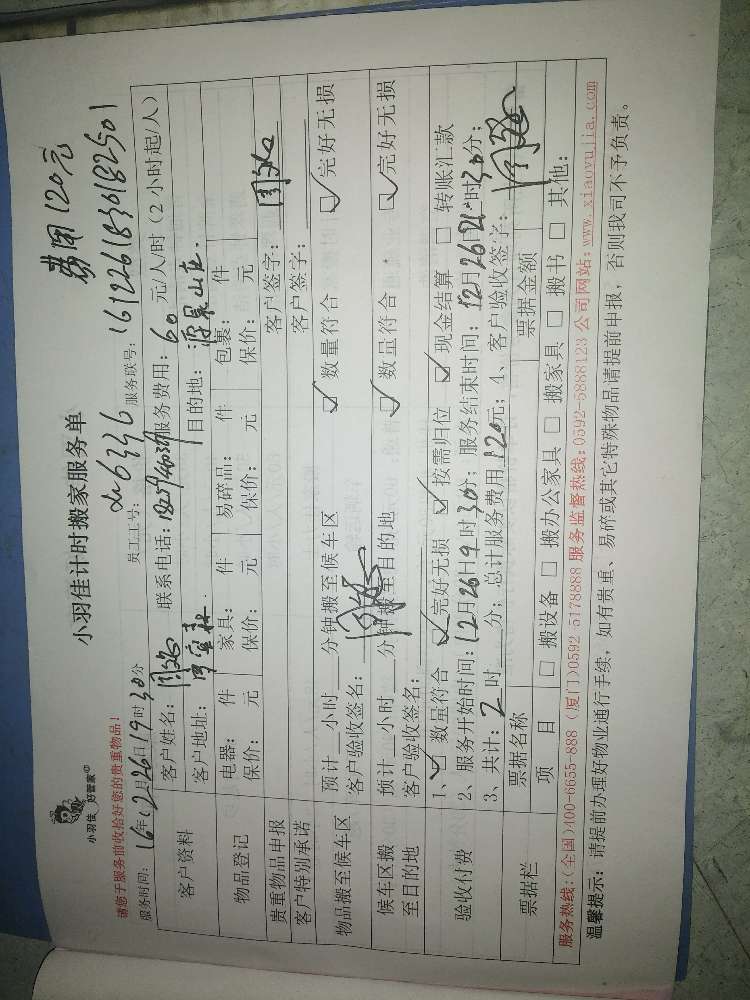 费用120元
小羽佳 好管家
小羽佳计时搬家服务单
请您于服务前收拾好您的贵重物品!
员工工号: 6336 服务联号: 1612261830182501
服务时间: 16年12月26日19时30分
客户资料 客户姓名: 联系电话: 服务费用: 60 元/人/时 (2小时起/人)
客户地址: 目的地: 源泉山庄.
物品登记 电器: 件 家具: 件 易碎品: 件 包裹: 件
保价: 元 保价: 元 保价: 元 保价: 元
贵重物品申报 客户签字:
客户特别承诺 客户签字:
物品搬至候车区 预计 小时 分钟搬至候车区 数量符合 完好无损
客户验收签名:
候车区搬至目的地 预计 小时 分钟搬至目的地 数量符合 完好无损
客户验收签名:
验收付费 1、 数量符合 完好无损 按需归位 现金结算 转账汇款
2、服务开始时间: 12月26日19时30分; 服务结束时间: 12月26日21时30分;
3、共计: 2 时 分; 总计服务费用 120元; 4、客户验收签字:
票据栏 票据名称 票据金额
项 目 搬设备 搬办公家具 搬家具 搬书 其他:
服务热线:(全国)400-6655-888 (厦门)0592 5178888 服务监督热线:0592-5888123 公司网站: www.xiaoyujia.com
温馨提示: 请提前办理好物业通行手续, 如有贵重、易碎或其它特殊物品请提前申报, 否则我司不予负责。